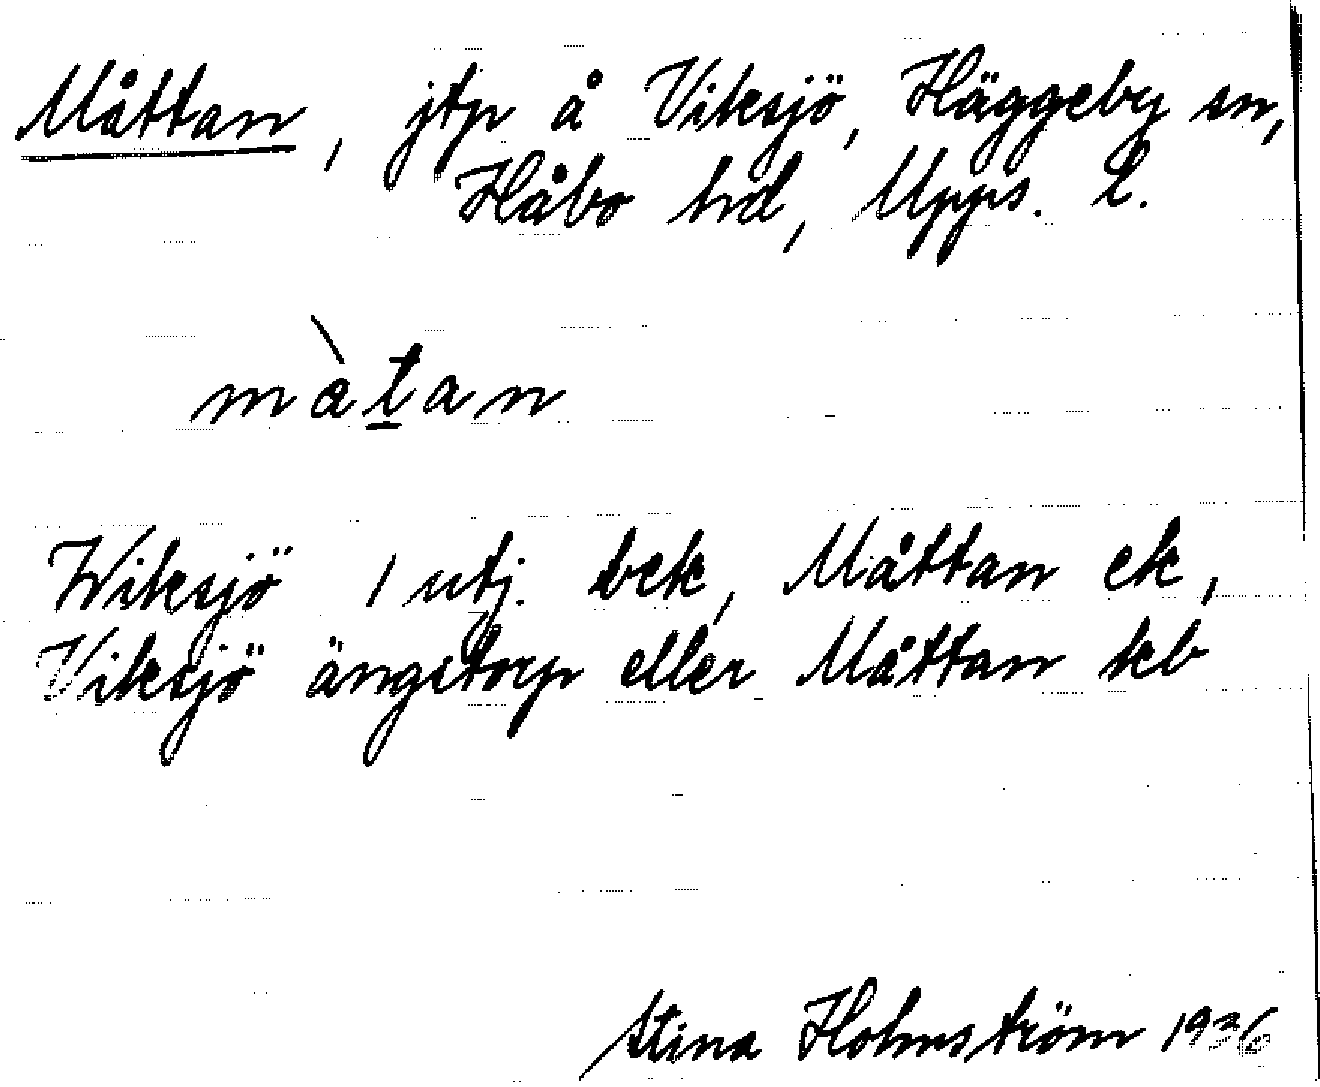 Måttan, jtp å Viksjö, Häggeby sn,
Håbo hd, Upps. l.
màt̲an
Wiksjö 1 utj. bek, Måttan ek,
Viksjö ängstorp eller Måttan kb
Stina Holmström 1936